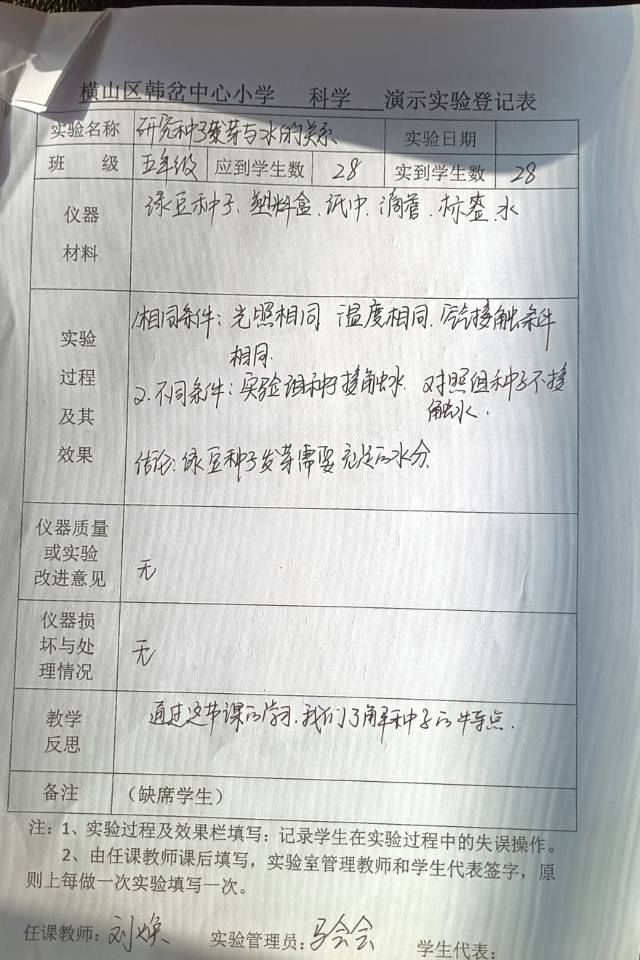 横山区韩岔中心小学 科学 演示实验登记表
实验名称 研究种子发芽与水的关系 实验日期
班 级 五年级 应到学生数 28 实到学生数 28
仪器 绿豆种子、塑料盒、纸巾、滴管、标签、水
材料
实验 1.相同条件：光照相同 温度相同、空气接触条件
相同.
过程 2.不同条件：实验组种子接触水 对照组种子不接
及其 触水.
效果 结论：绿豆种子发芽需要充足的水分.
仪器质量
或实验
改进意见 无
仪器损
坏与处
理情况 无
教学 通过这节课的学习，我们了解种子的特点.
反思
备注 （缺席学生）
注：1、实验过程及效果栏填写：记录学生在实验过程中的失误操作。
2、由任课教师课后填写，实验室管理教师和学生代表签字，原
则上每做一次实验填写一次。
任课教师：刘焕 实验管理员：马会会 学生代表：